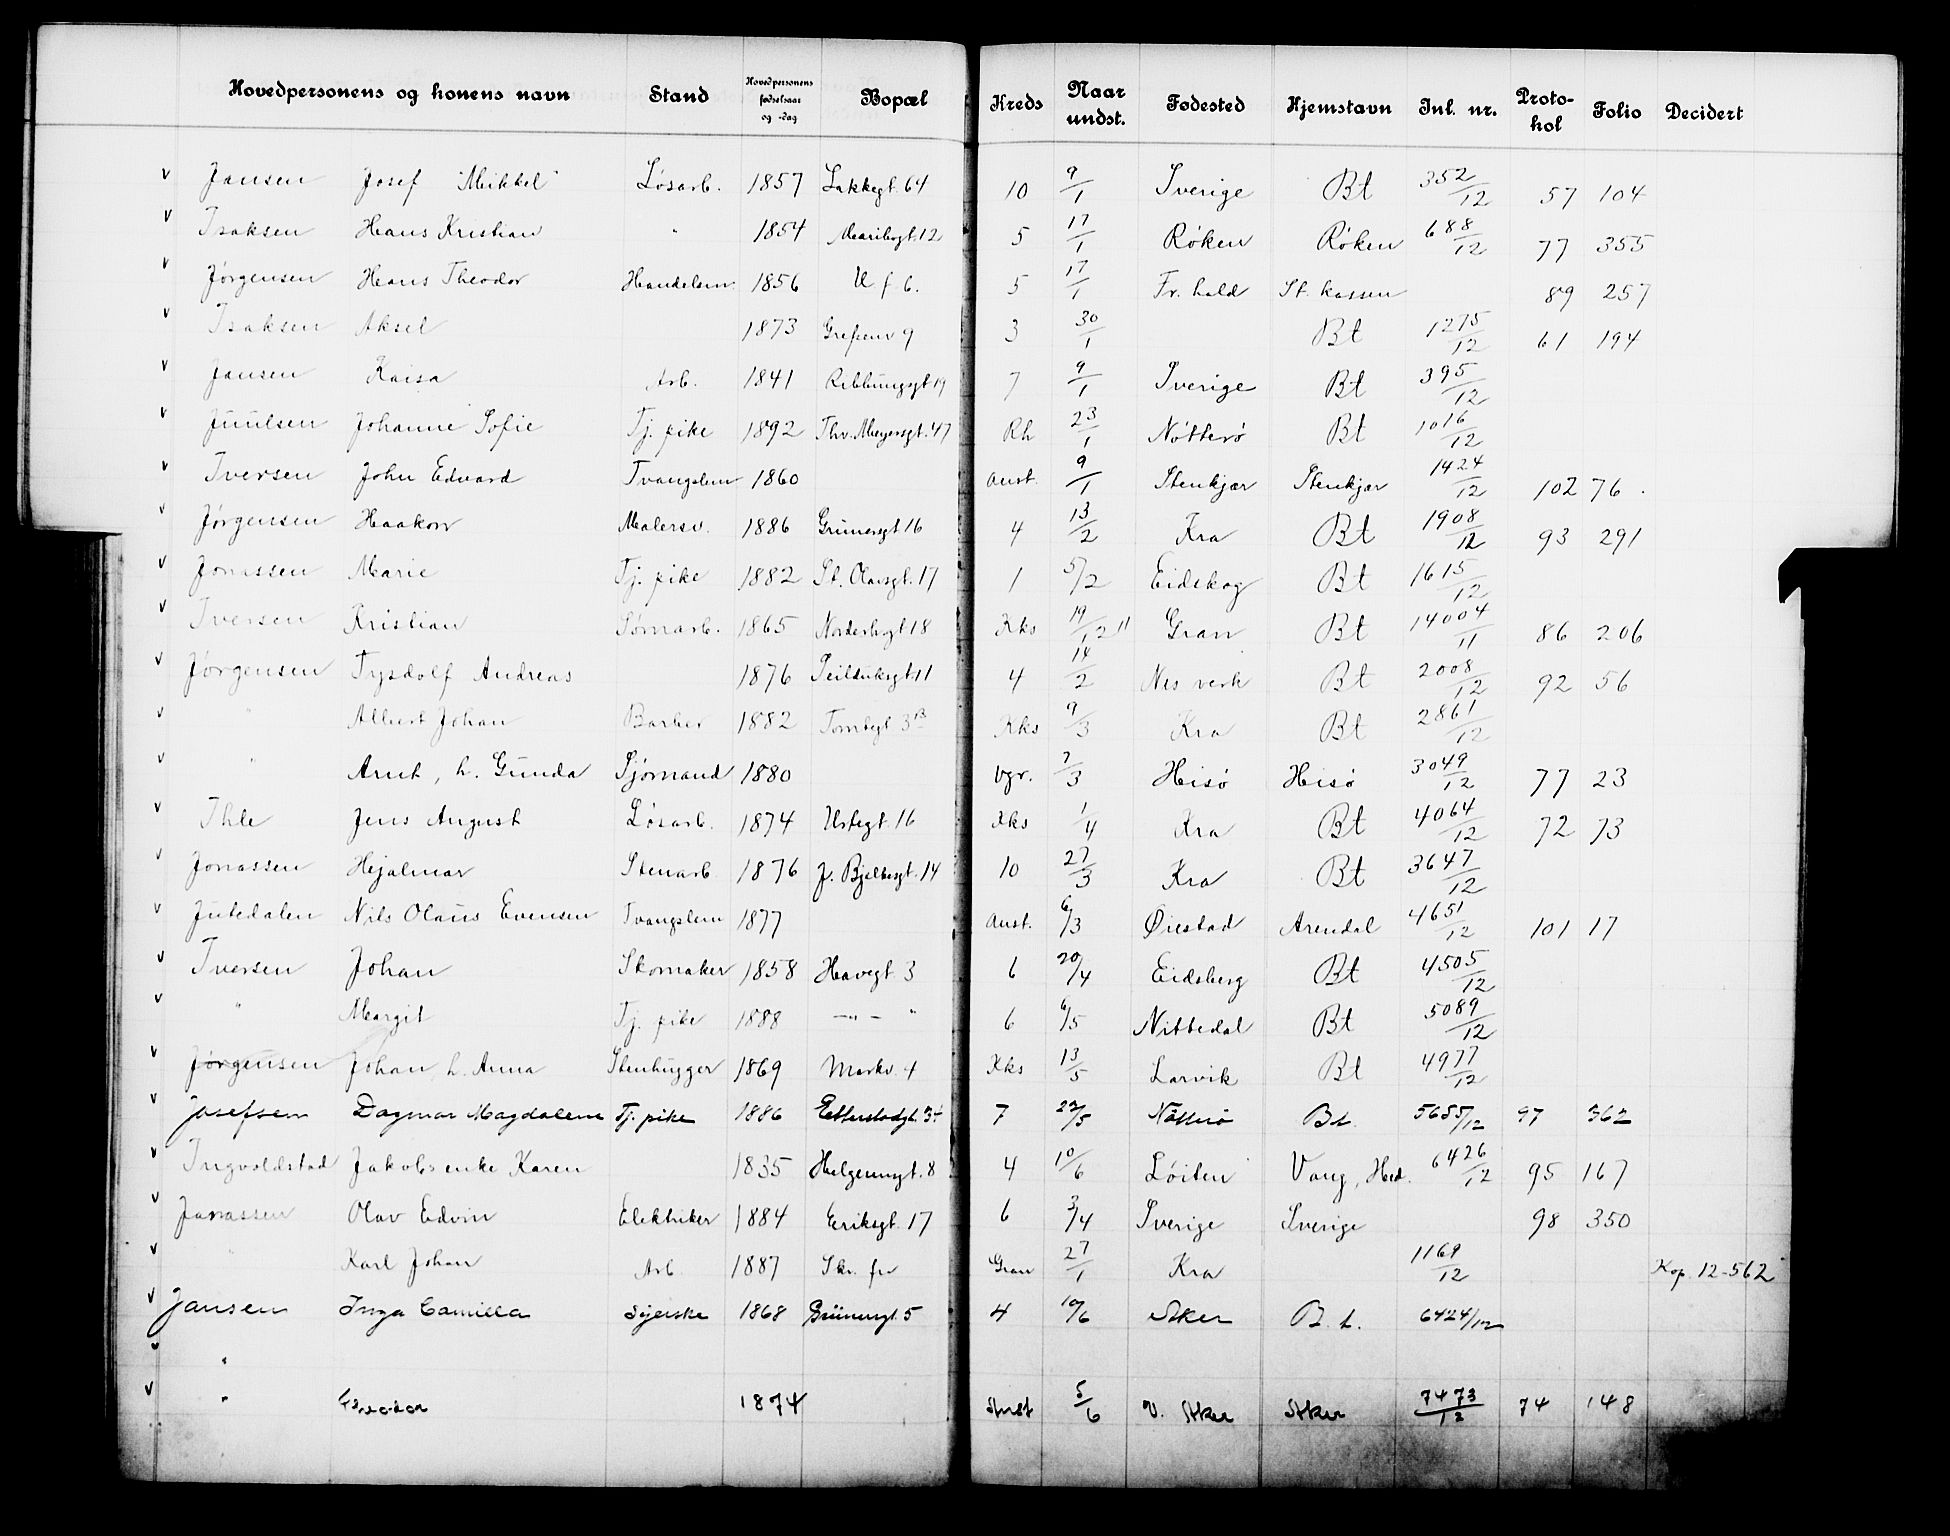 Hovedpersonens og konens navn Stand Hovedpersonens fødselsaar og -dag Bopæl Kreds Naar undst. Fødested Hjemstavn Inl. nr. Proto-kol Folio Decidert
v Jansen Josef Mikkel Løsarb. 1857 Lakkegt. 64 10 9/1 Sverige Bt 352/12 57 104
v Isaksen Hans Kristian " 1854 Maribogt. 12 5 17/1 Røken Røken 688/12 77 355
v Jørgensen Hans Theodor Handelsm. 1856 U f b. 5 17/1 Fr. hald St. kassen 89 257
v Isaksen Aksel 1873 Grefsenv 9 3 30/1 Bt 1275/12 61 194
v Jansen Kaisa Arb. 1841 Ribbungsgt. 19 7 9/1 Sverige Bt 395/12
v Juulsen Johanne Sofie Tj. pike 1892 Thv. Meyersgt. 47 Rh 23/1 Nøtterø Bt 1016/12
v Iversen John Edvard Tvangslem 1860 Anst. 9/1 Stenkjær Stenkjær 1424/12 102 76
v Jørgensen Haakon Malersv. 1886 Grünersgt. 16 4 13/2 Kra Bt 1908/12 93 291
v Jonassen Marie Tj. pike 1882 St. Olavsgt. 17 1 5/2 Eidskog Bt 1615/12
v Iversen Kristian Sømarb. 1865 Norderhogt 18 Kks 19/12 11 Gran Bt 14004/11 86 206
v Jørgensen Tysdolf Andreas 1876 Seilduksgt. 11 4 14/2 Nes verk Bt 2008/12 92 56
v " Albert Johan Barber 1882 Tomtegt 3B Kks 9/3 Kra Bt 2861/12
v " Arnt, h. Gunda Sjømand 1880 Vgr. 7/3 Hisø Hisø 3049/12 77 23
v Ihle Jens August Løsarb. 1874 Urtegt. 16 Kks 1/4 Kra Bt 4064/12 72 73
v Jonassen Hjalmar Stenarb. 1876 J. Bjelkesgt. 14 10 27/3 Kra Bt 3647/12
v Jutedalen Nils Olaus Evensen Tvangslem 1877 Anst. 6/3 Øiestad Arendal 4651/12 101 17
v Iversen Johan Skomaker 1858 Havegt 3 6 20/4 Eidsberg Bt 4505/12
v " Margit Tj. pike 1888 —"— " 6 6/5 Nittedal Bt 5089/12
v Jørgensen Johan h. Anna Stenhugger 1869 Markv. 4 Kks 13/5 Larvik Bt 4977/12
v Josefsen Dagmar Magdalene Tj. pike 1886 Etterstadgt. 7 22/5 Nøtterø Bt. 5655/12 97 362
v Ingvoldstad Jakobs enke Karen 1835 Helgesensgt. 8 4 10/6 Løiten Vang, Hed. 6426/12 95 167
v Jonassen Olav Edvin Elektriker 1884 Eriksgt. 17 6 3/4 Sverige Sverige 98 350
v " Karl Johan Arb. 1887 Gran 27/1 Kra 1169/12 Kop. 12-562
v Jansen Inga Camilla Syerske 1868 Grünersgt. 5 4 10/6 Aker B. t. 6424/12
v "
v " 1874 Anst 5/6 V. Aker Aker 7473/12 74 148